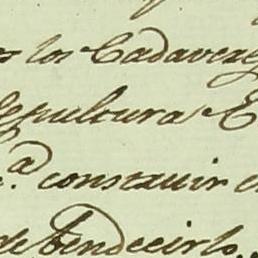 los Cadavere
sepultura E
construir e
de bendecirlo.